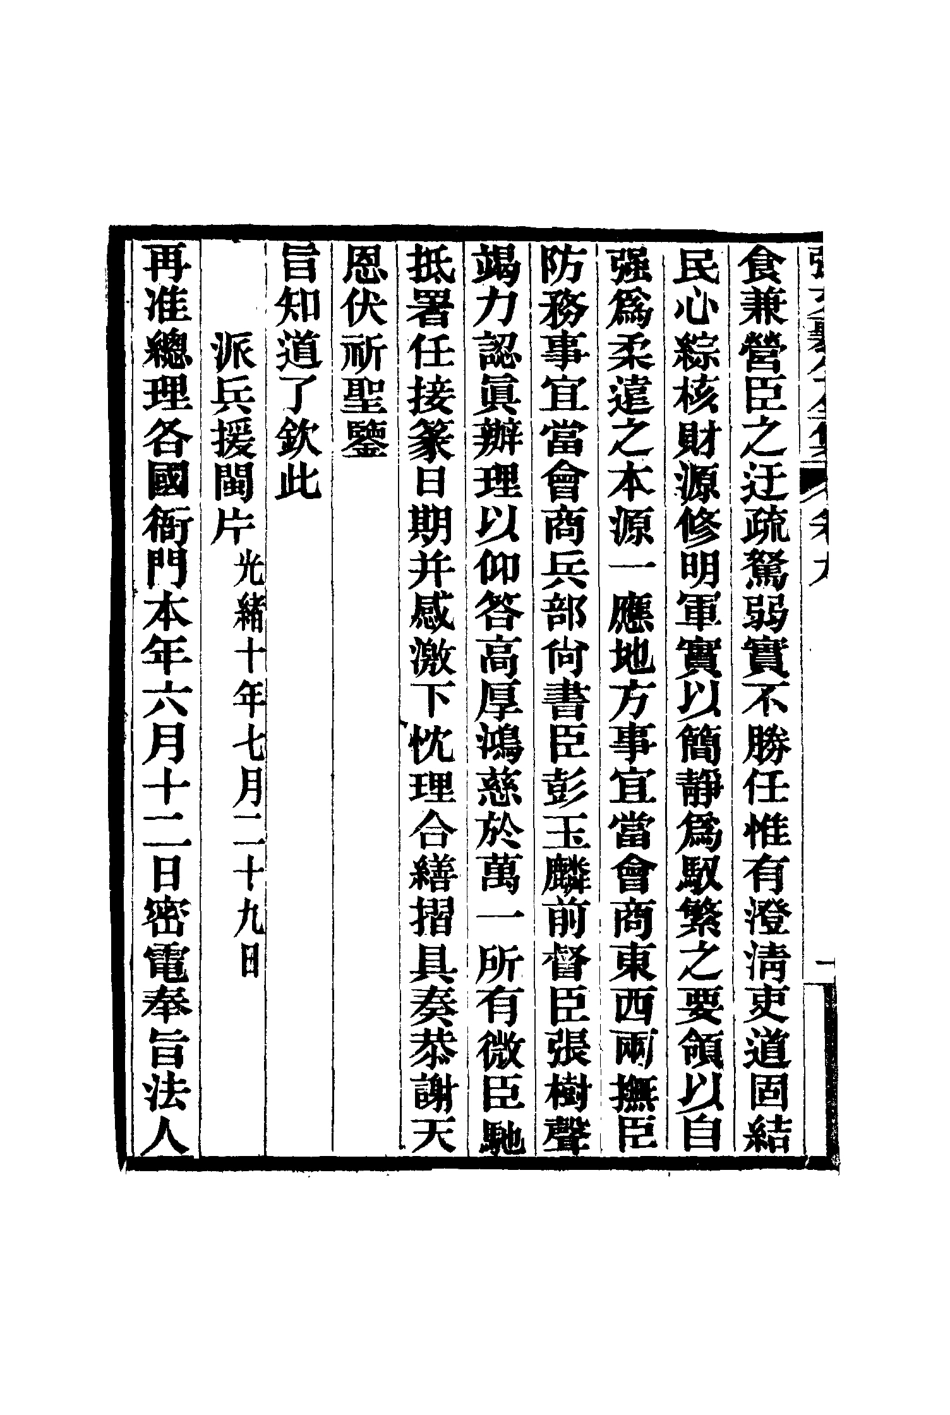 食兼營臣之迂疏駑弱實不勝任惟有澄淸吏道固結
民心綜核財源修明軍實以簡靜爲馭繁之要領以自
强爲柔遠之本源一應地方事宜當會商東西兩撫臣
防務事宜當會商兵部尙書臣彭玉麟前督臣張樹聲
竭力認眞辦理以仰答高厚鴻慈於萬一所有微臣馳
抵署任接篆日期并感激下忱理合繕摺具奏恭謝天
恩伏祈聖鑒
旨知道了欽此
派兵援閩片光緒十年七月二十九日
再准總理各國衙門本年六月十二日密電奉旨法人